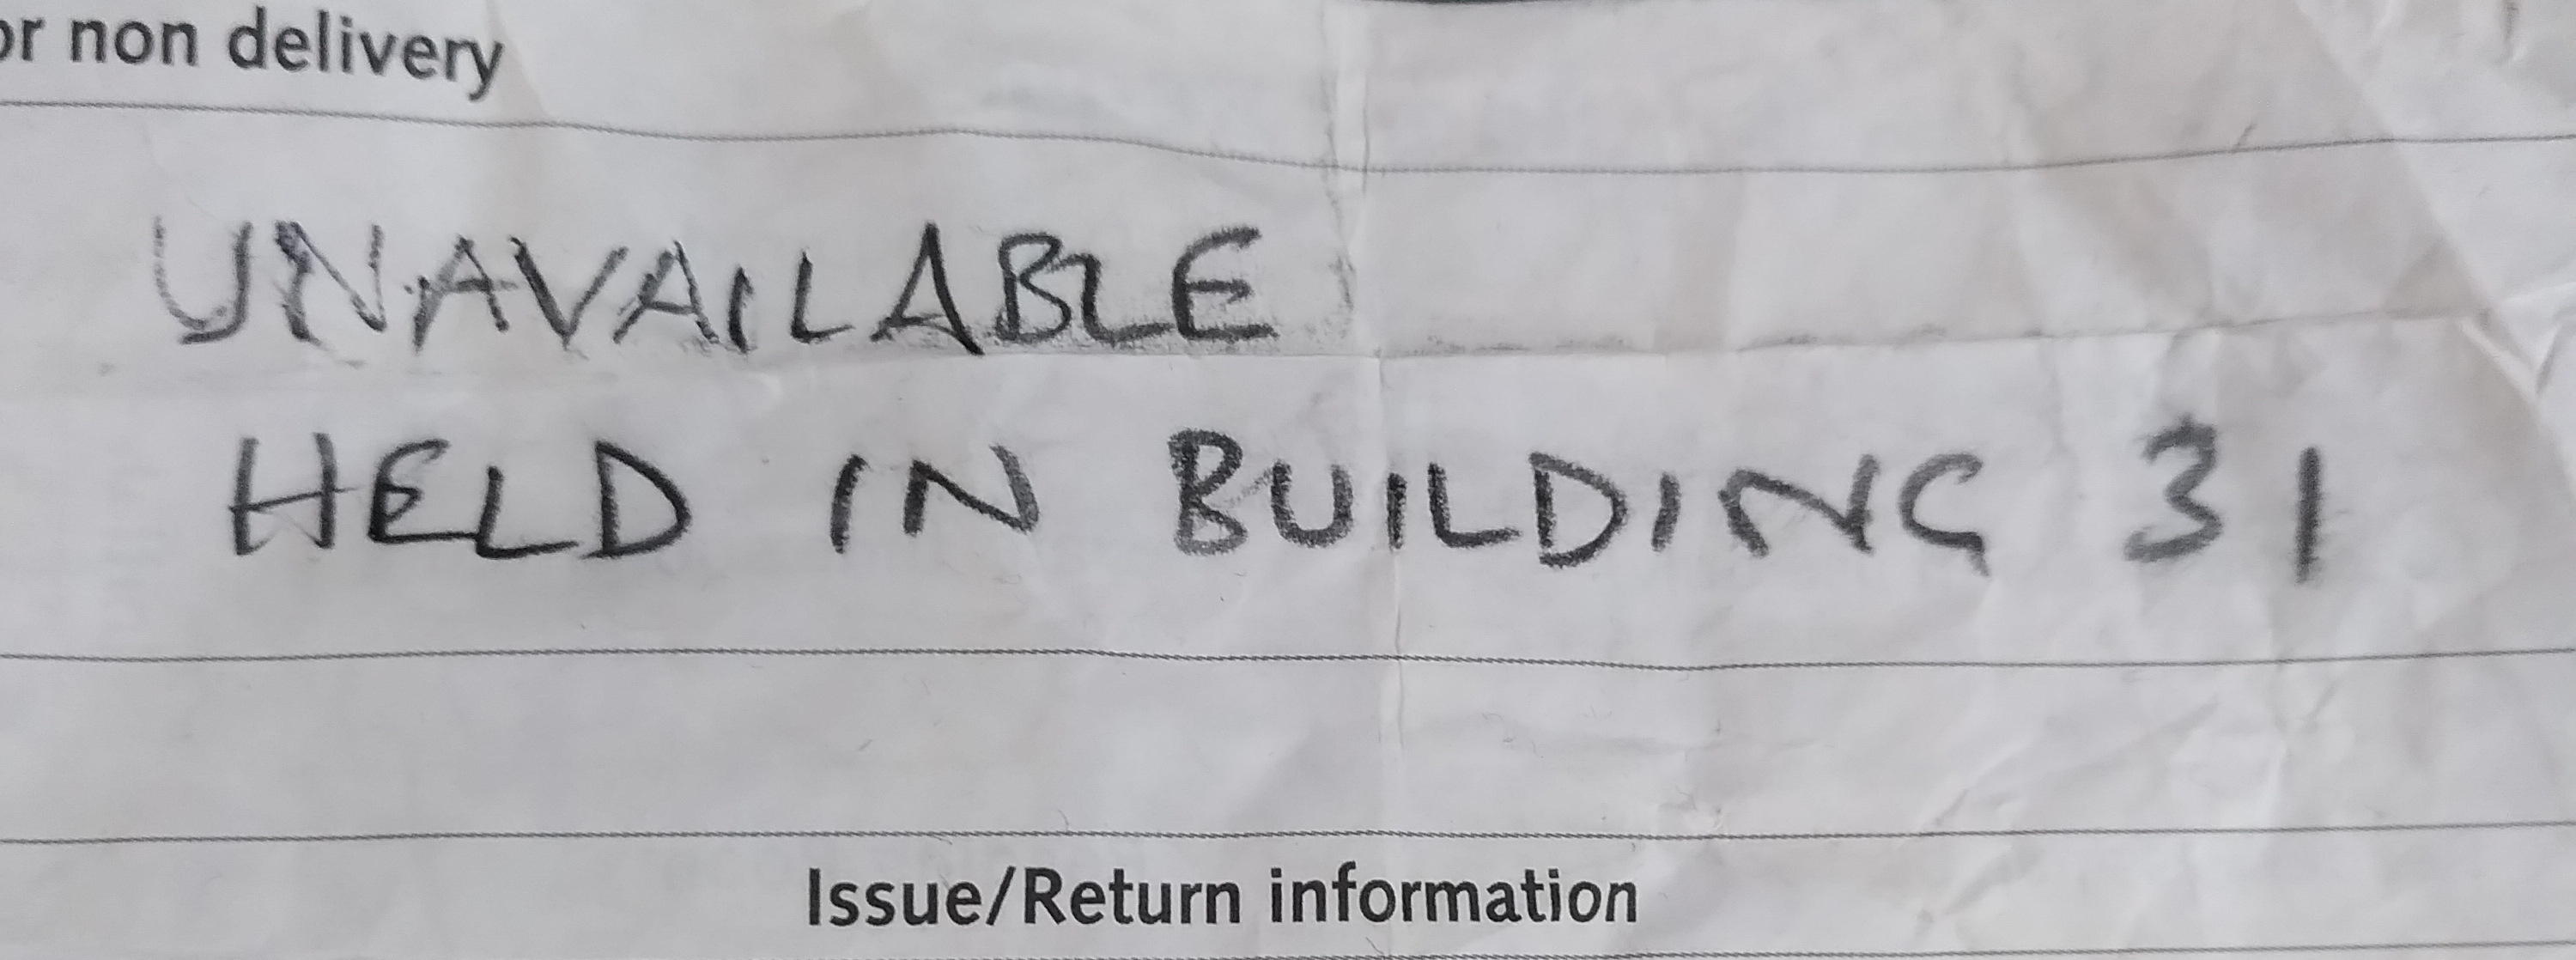 or non delivery
UNAVAILABLE
HELD IN BUILDING 31
Issue/Return information